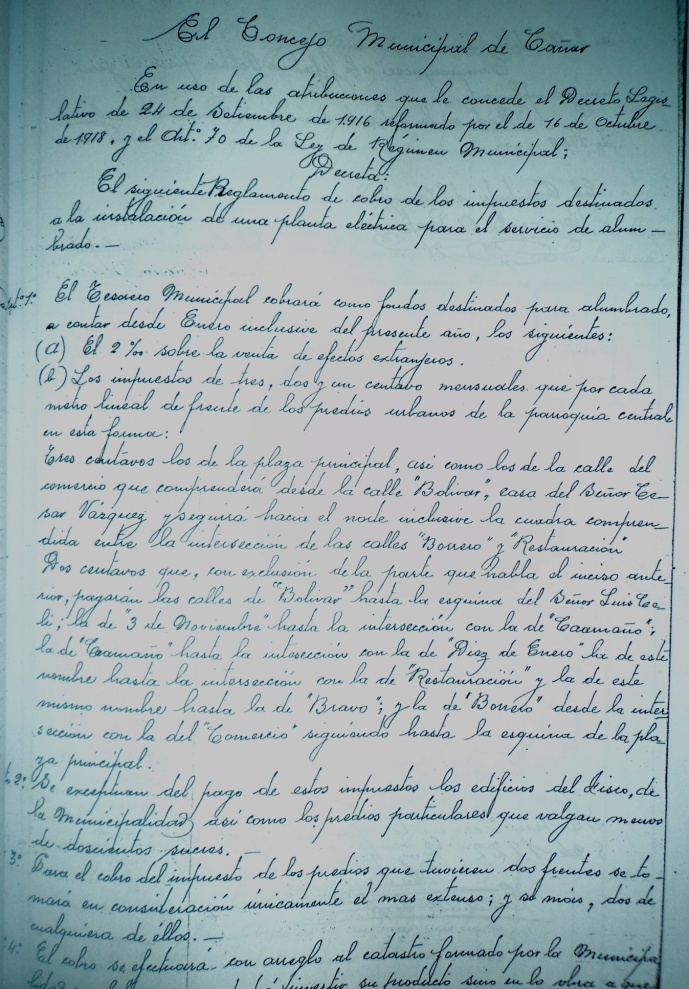 El Concejo Municipal de Cañar
En uso de las atribuciones que le concede el Decreto Legis-
lativo de 24 de Setiembre de 1916 reformado por el de 16 de Octubre
de 1918, y el Art.º 70 de la Ley de Régimen Municipal;
Decreta:
El siguiente Reglamento de cobro de los impuestos destinados
a la instalación de una planta eléctrica para el servicio de alum-
brado.—
Art.º 1º El Tesorero Municipal cobrará como fondos destinados para alumbrado,
a contar desde Enero inclusive del presente año, los siguientes:
(a) El 2 ‰ sobre la venta de efectos extranjeros.
(b) Los impuestos de tres, dos y un centavo mensuales que por cada
metro lineal de frente de los predios urbanos de la parroquia central
en esta forma:
Tres centavos los de la plaza principal, asi como los de la calle del
comercio que comprenderá desde la calle "Bolívar", casa del Señor Ce-
sar Vázquez y seguirá hacia el norte inclusive la cuadra compren-
dida entre la intersección de las calles "Borrero" y "Restauración"
Dos centavos que, con exclusión de la parte que habla el inciso ante-
rior, pagarán las calles de "Bolívar" hasta la esquina del Señor Luis
la de "3 de Noviembre" hasta la intersección con la de "Caamaño";
la de "Caamaño" hasta la intesección con la de "Diez de Enero" la de este
nombre hasta la intersección con la de "Restauración" y la de este
mismo nombre hasta la de "Bravo"; y la de "Borrero" desde la inter-
sección con la del "Comercio" siguiendo hasta la esquina de la pla-
za principal.
2º Se exceptuan del pago de estos impuestos los edificios del Fisco, de
la Municipalidad, así como los predios particulares que valgan menos
de doscientos sucres.—
3º Para el cobro del impuesto de los predios que tuvieren dos frentes se to-
mará en consideración únicamente el mas extenso; y si más, dos de
cualquiera de éllos.—
4º El cobro se efectuará con arreglo al catastro formado por la Municipa
invertir su producto sino en la obra a que